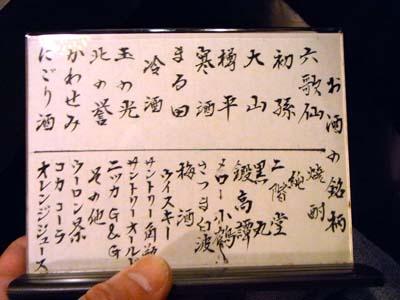 お酒の銘柄
六歌仙
初孫
大山
樽平
寒酒
まる田
冷酒
玉の光
北の誉
かわせみ
にごり酒
焼酎
純
二階堂
黒丸
鍛高譚
メロー小鶴
さつま白波
梅酒
ウイスキー
サントリー角瓶
サントリーオールド
ニッカG&G
その他
ウーロン茶
コカコーラ
オレンジジュース